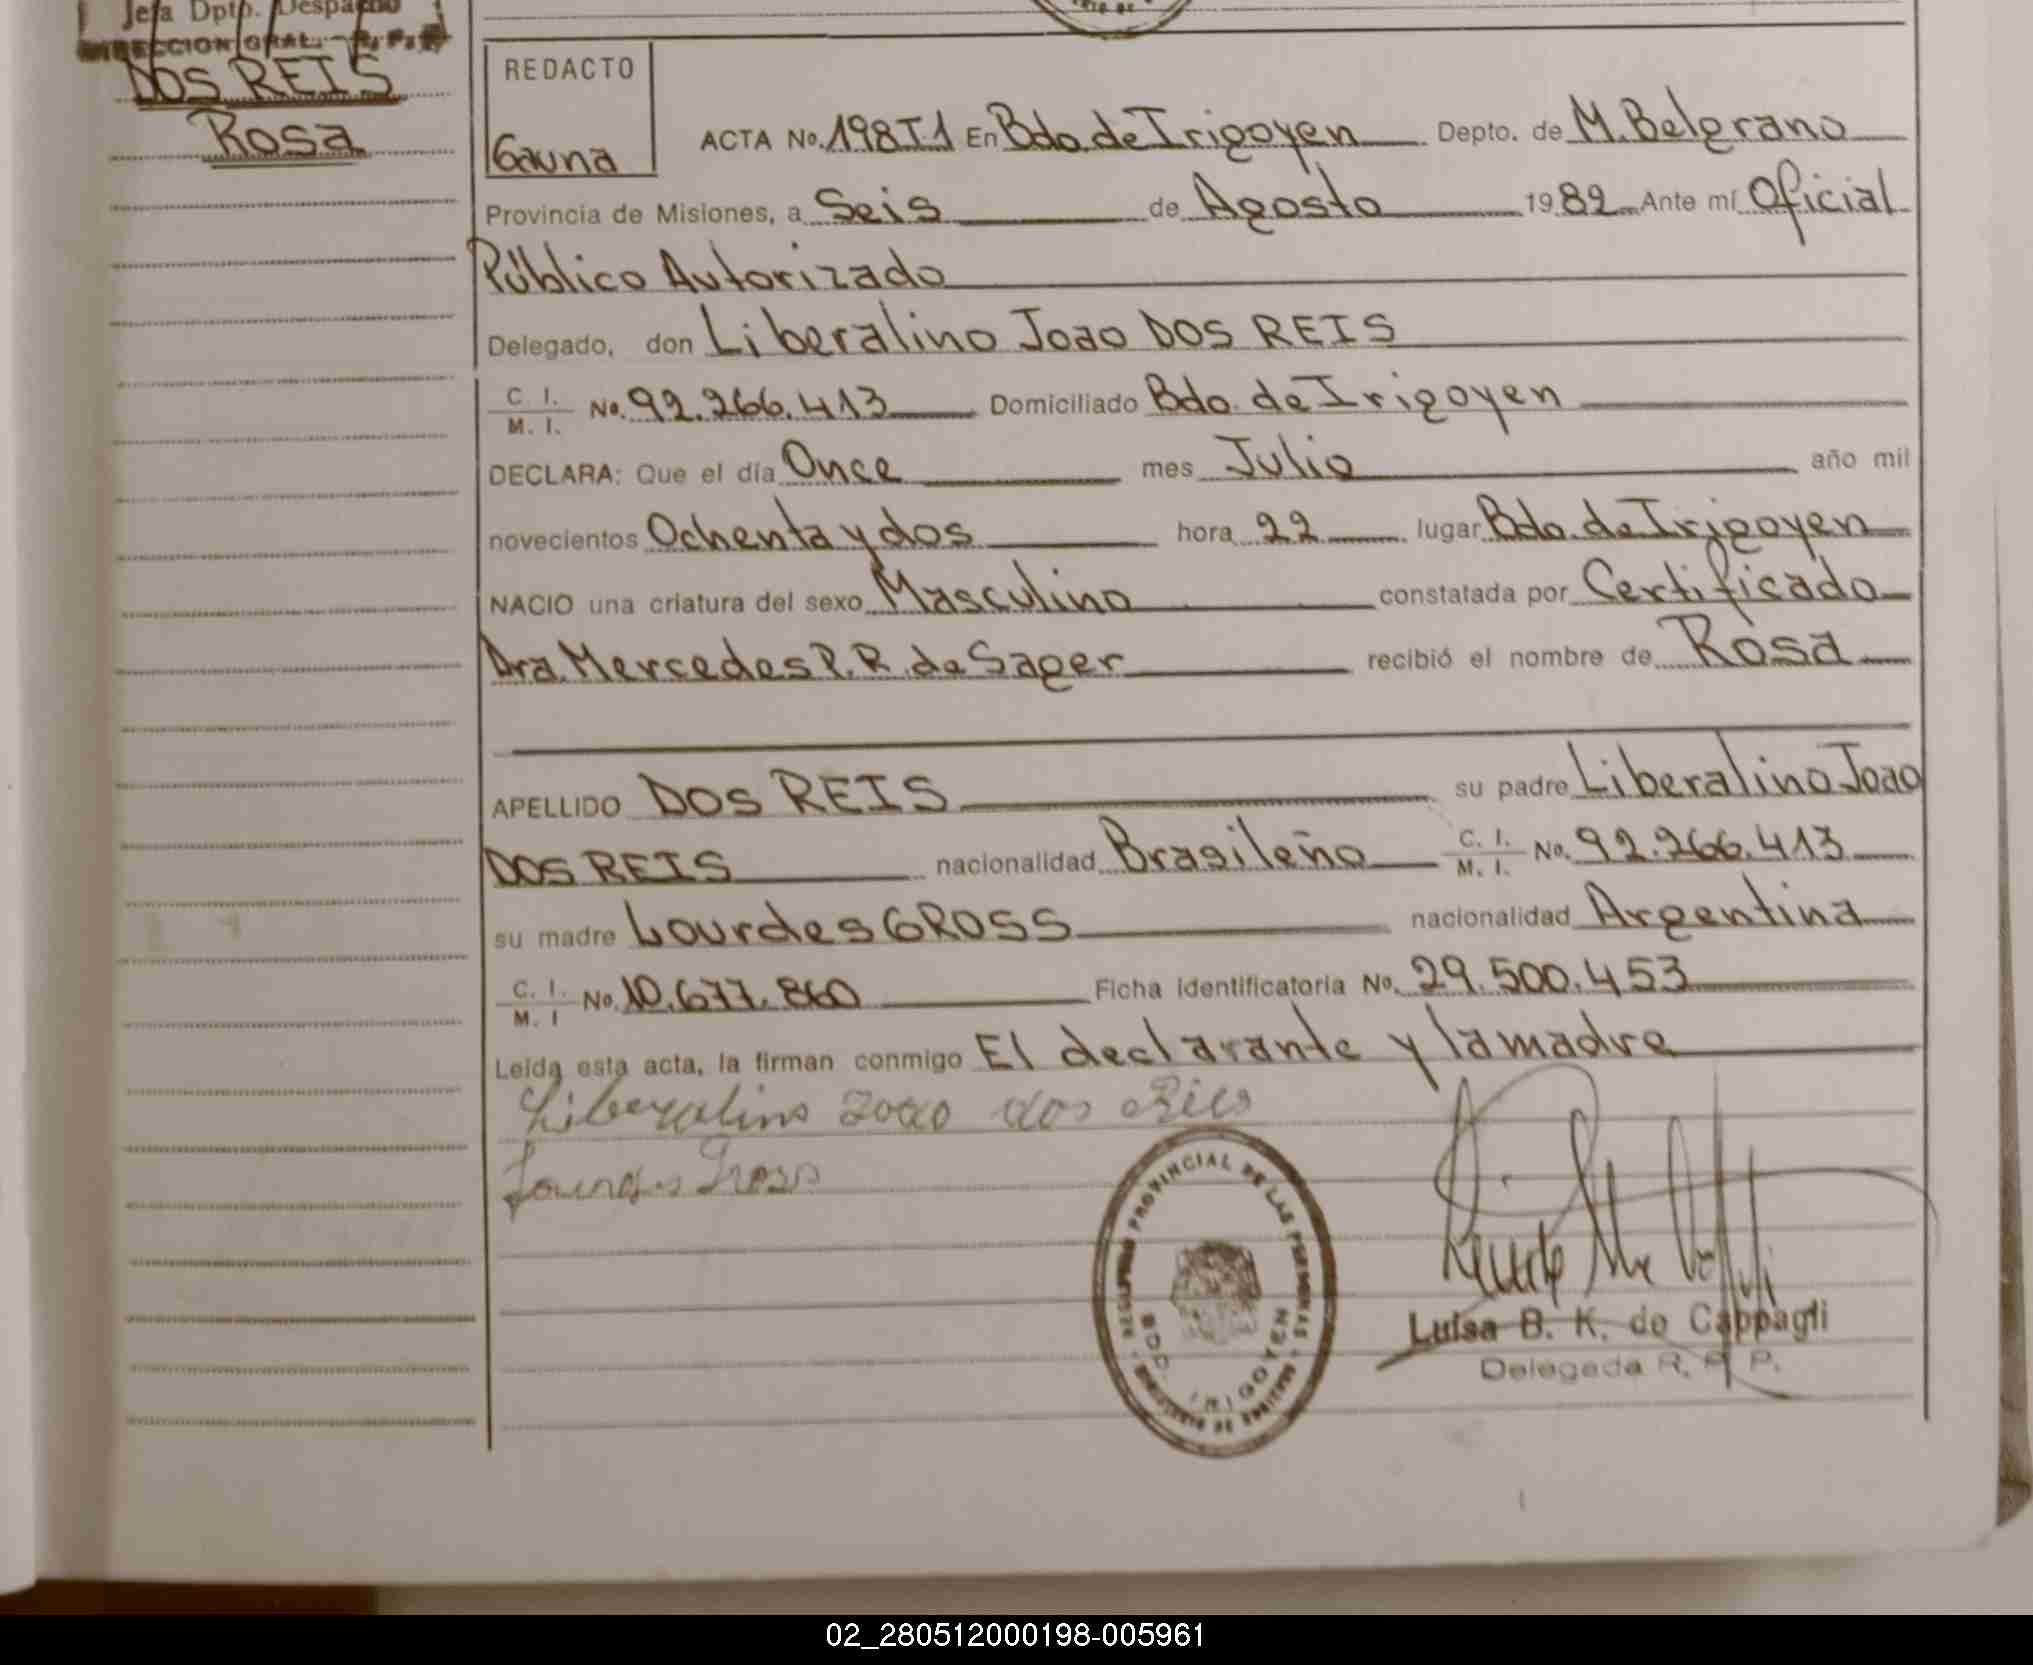 Jefa Dpto. Despacho
DIRECCION GRAL. R. P.
DOS REIS
Rosa
REDACTO
Gauna
ACTA No. 198T1 En Bdo. de Irigoyen Depto. de M. Belgrano
Provincia de Misiones, a Seis de Agosto 1982 Ante mí Oficial
Público Autorizado
Delegado, don Liberalino Joao DOS REIS
C. I. / M. I. No. 92.266.413 Domiciliado Bdo. de Irigoyen
DECLARA: Que el día Once mes Julio año mil
novecientos Ochenta y dos hora 22 lugar Bdo. de Irigoyen
NACIO una criatura del sexo Masculino constatada por Certificado
Dra. Mercedes P. R. de Sager recibió el nombre de Rosa
APELLIDO DOS REIS su padre Liberalino Joao
DOS REIS nacionalidad Brasileño C. I. / M. I. No. 92.266.413
su madre Lourdes GROSS nacionalidad Argentina
C. I. / M. I No. 10.677.860 Ficha identificatoria No. 29.500.453
Leída esta acta, la firman conmigo El declarante y la madre
Liberalino Joao dos Reis
Lourdes Gross
PROVINCIAL DE LAS PERSONAS
BDO. IRIGOYEN
Luisa B. K. de Cappagli
Delegada R. P. P.
02_280512000198-005961